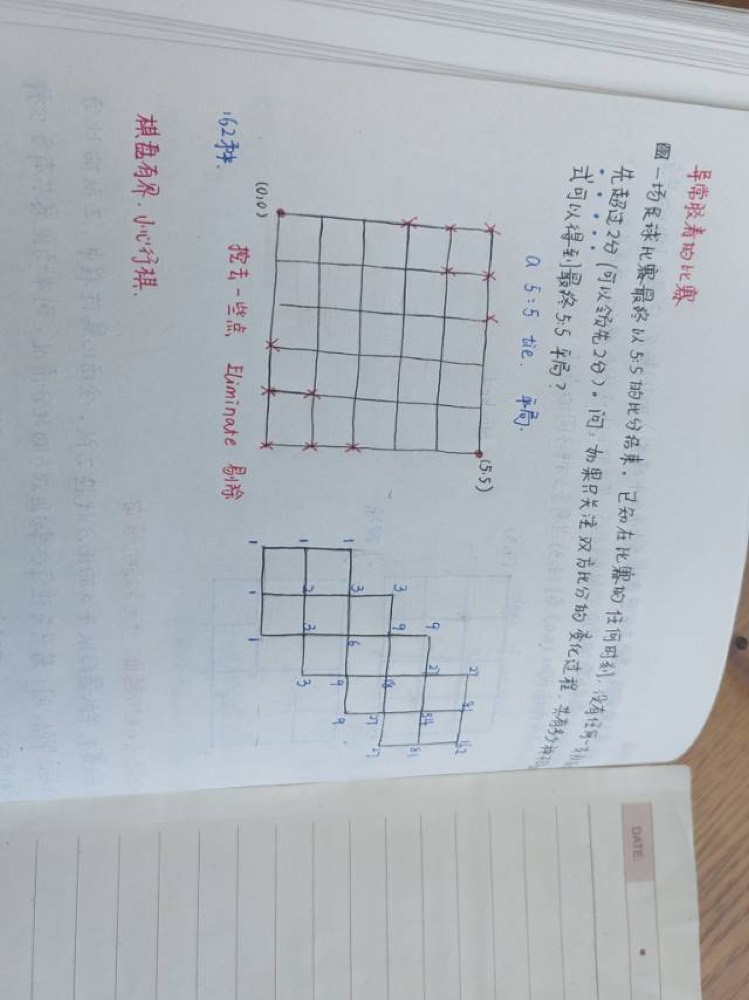 异常胶着的比赛
一场足球比赛最终以5:5的比分结束。已知在比赛的任何时刻,没有任何一方
先超过2分(可以领先2分)。问:如果只关注双方比分的变化过程,共有多少种
式可以得到最终5:5平局?
a 5:5 tie. 平局.
(5,5)
(0,0)
挖去一些点 Eliminate 剔除
1 1 1
1 2 3 3
1 3 6 9 9
3 9 18 27 27
9 27 54 81
27 81 162
162种.
棋盘有界.小心行棋.
DATE